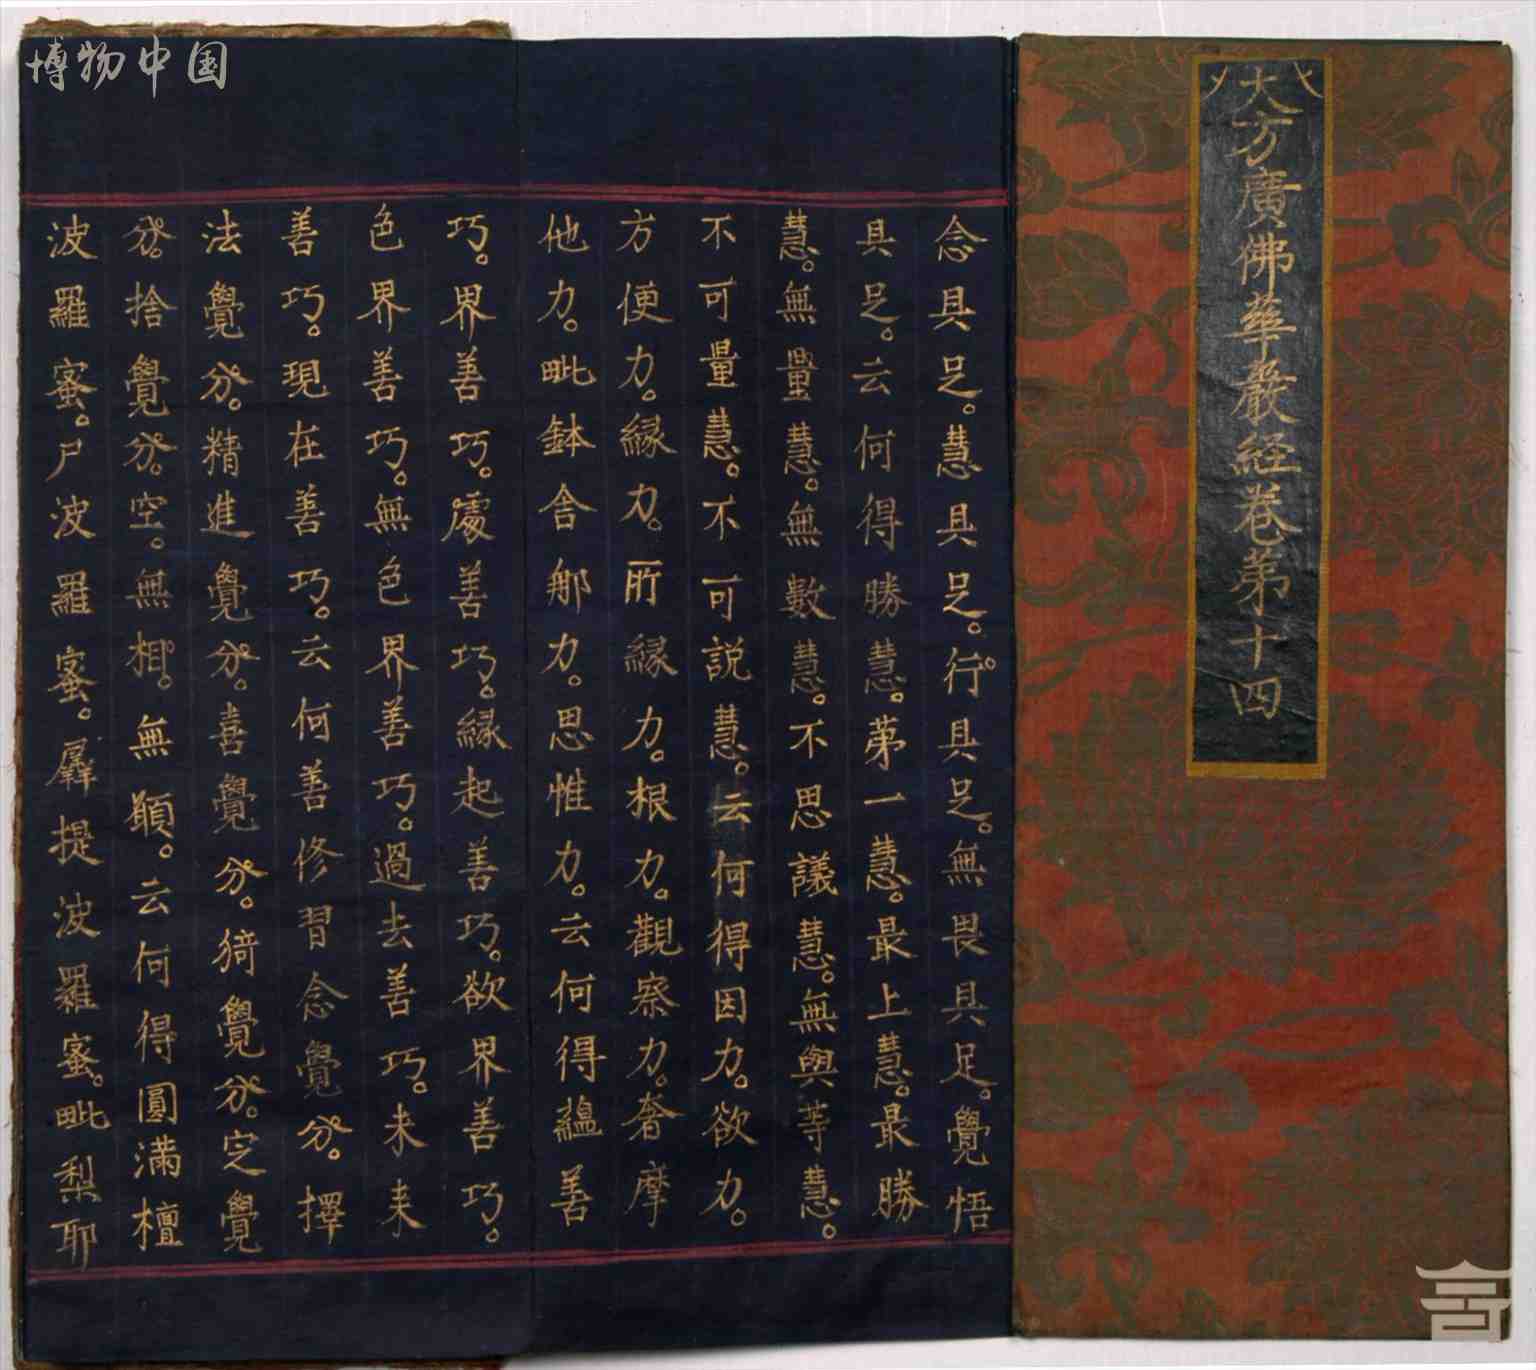 博物中国
大方廣佛華嚴經卷第十四
念具足。慧具足。行具足。無畏具足。覺悟
具足。云何得勝慧。第一慧。最上慧。最勝
慧。無量慧。無數慧。不思議慧。無與等慧。
不可量慧。不可説慧。云何得因力。欲力。
方便力。縁力。所縁力。根力。觀察力。奢摩
他力。毗鉢舍那力。思惟力。云何得蘊善
巧。界善巧。處善巧。縁起善巧。欲界善巧。
色界善巧。無色界善巧。過去善巧。未来
善巧。現在善巧。云何善修習念覺分。擇
法覺分。精進覺分。喜覺分。猗覺分。定覺
分。捨覺分。空。無相。無願。云何得圓滿檀
波羅蜜。尸波羅蜜。羼提波羅蜜。毗梨耶